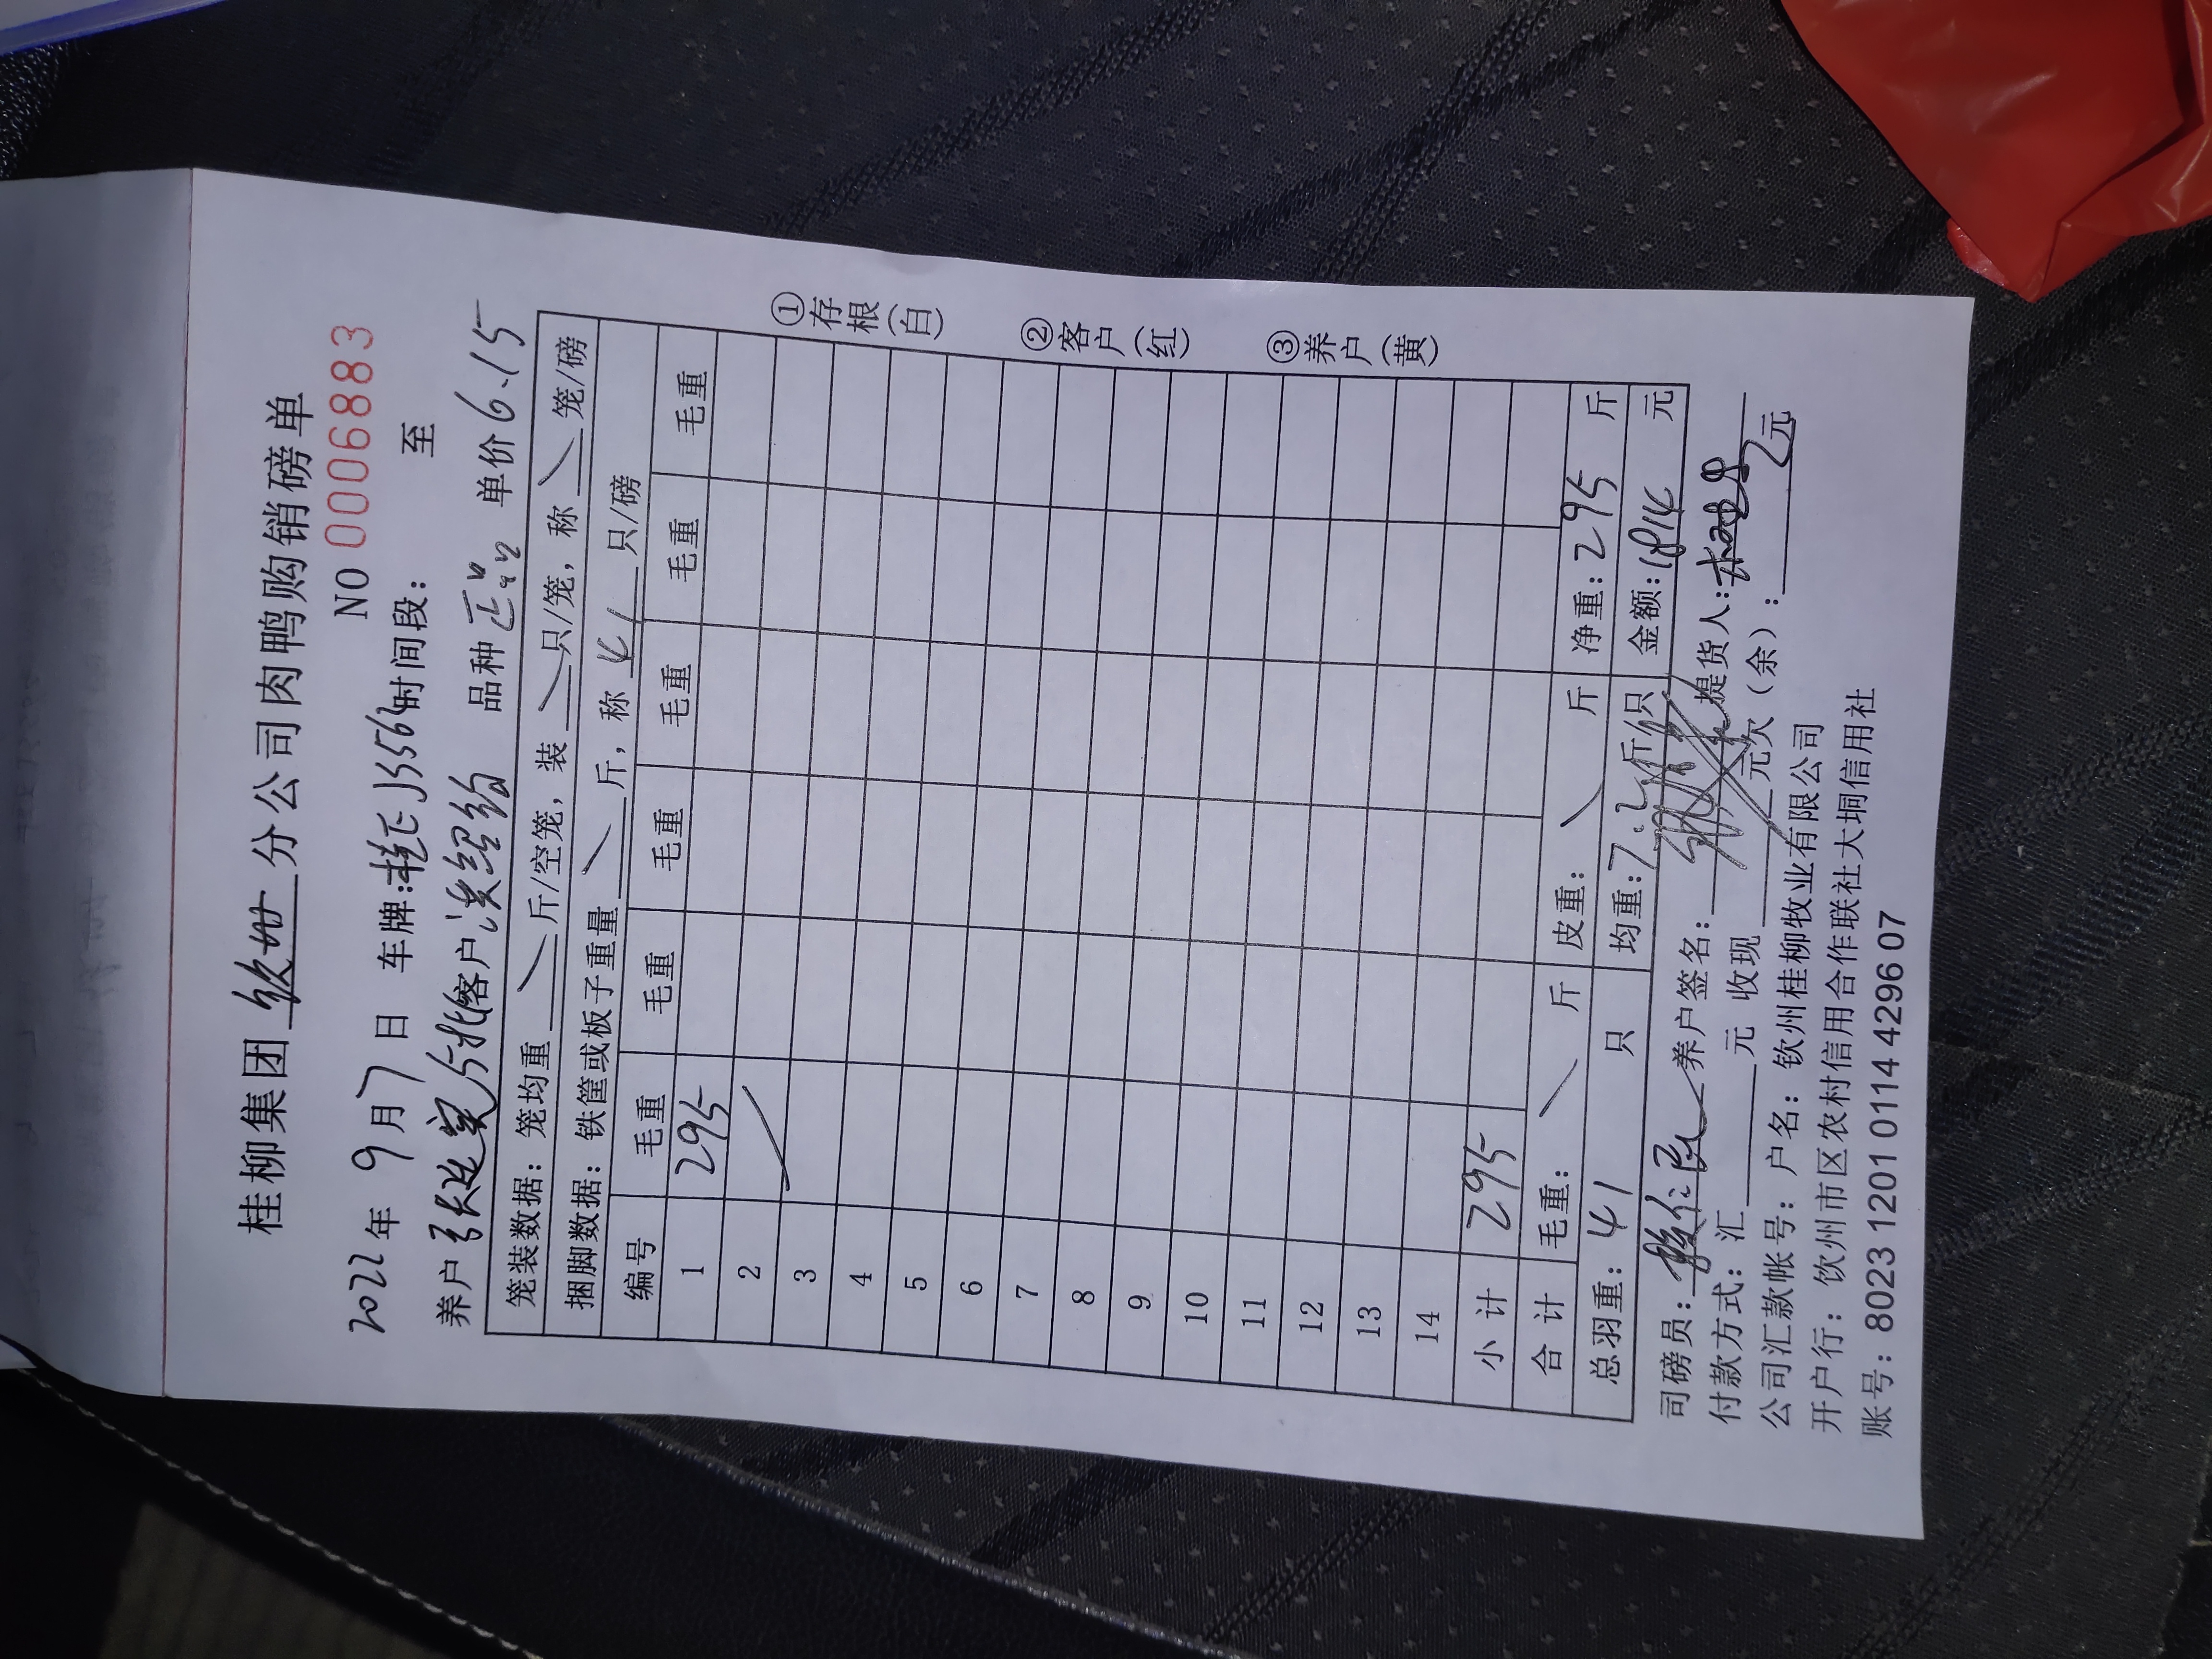 桂柳集团 钦州 分公司肉鸭购销磅单
NO 0006883
2022年 9月7日 车牌:桂E J5563 时间段: 至
养户 客户 洪绍钧 品种 正品 单价 6.15
笼装数据: 笼均重 斤/空笼, 装 只/笼, 称 笼/磅
捆脚数据: 铁筐或板子重量 斤, 称 41 只/磅
编号 毛重 毛重 毛重 毛重 毛重 毛重
1 295
2
3
4
5
6
7
8
9
10
11
12
13
14
小计 295
合计 毛重: 斤 皮重: 斤 净重: 295 斤
总羽重: 41 只 均重: 7.2 斤/只 金额: 1814 元
司磅员: 养户签名: 提货人:
付款方式: 汇 元 收现 元欠(余): 元
公司汇款帐号: 户名: 钦州桂柳牧业有限公司
开户行: 钦州市区农村信用合作联社大垌信用社
账号: 8023 1201 0114 4296 07
①存根(白)
②客户(红)
③养户(黄)